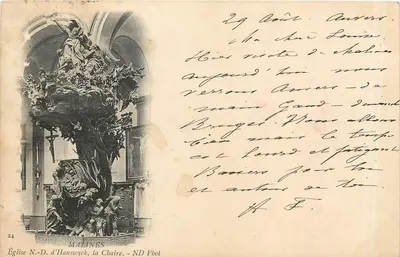 29 Août. Anvers.
Ma chère Louise
Hier visite de Malines
aujourd'hui nous
verrons Anvers - de-
main Gand - dimanche
Bruges. Nous allons
bien mais le temps
est lourd et fatigant
Baisers pour toi
et autour de toi.
A F.
24
MALINES
Église N.-D. d'Hanswyck, la Chaire. - ND Phot